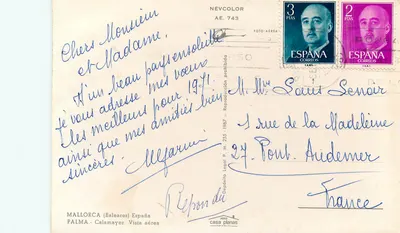 NEVCOLOR
AE. 743
Chers Monsieur
et Madame,
D'un beau pays ensoleillé
je vous adresse mes vœux
les meilleurs pour 1971
ainsi que mes amitiés bien
sincères.
Répondu
3
PTAS
ESPAÑA
CORREOS
2
PTAS
ESPAÑA
CORREOS
M. Mme Saint Senoir
1 rue de la Madeleine
27. Pont. Audemer
France
MALLORCA (Baleares) España
PALMA - Calamayor. Vista aérea
casa planas